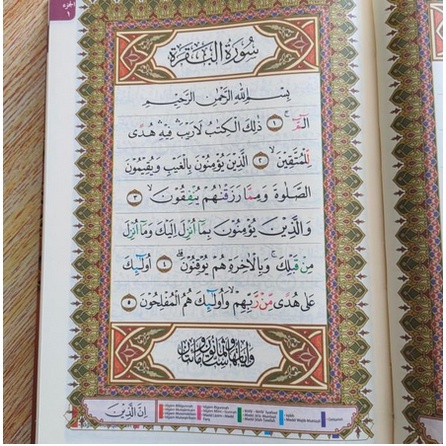 الجزء ١
سُورَةُ الْبَقَرَةِ
بِسْمِ اللّٰهِ الرَّحْمٰنِ الرَّحِيْمِ
الٓمّٓ ۚ ١ ذٰلِكَ الْكِتٰبُ لَا رَيْبَ ۛ فِيْهِ ۛ هُدًى
لِّلْمُتَّقِيْنَ ۙ ٢ الَّذِيْنَ يُؤْمِنُوْنَ بِالْغَيْبِ وَيُقِيْمُوْنَ
الصَّلٰوةَ وَمِمَّا رَزَقْنٰهُمْ يُنْفِقُوْنَ ۙ ٣
وَالَّذِيْنَ يُؤْمِنُوْنَ بِمَآ اُنْزِلَ اِلَيْكَ وَمَآ اُنْزِلَ
مِنْ قَبْلِكَ ۚ وَبِالْاٰخِرَةِ هُمْ يُوْقِنُوْنَ ۗ ٤ اُولٰۤىِٕكَ
عَلٰى هُدًى مِّنْ رَّبِّهِمْ ۙ وَاُولٰۤىِٕكَ هُمُ الْمُفْلِحُوْنَ ٥
وآياتها مائتان وست وثمانون
اِنَّ الَّذِيْنَ